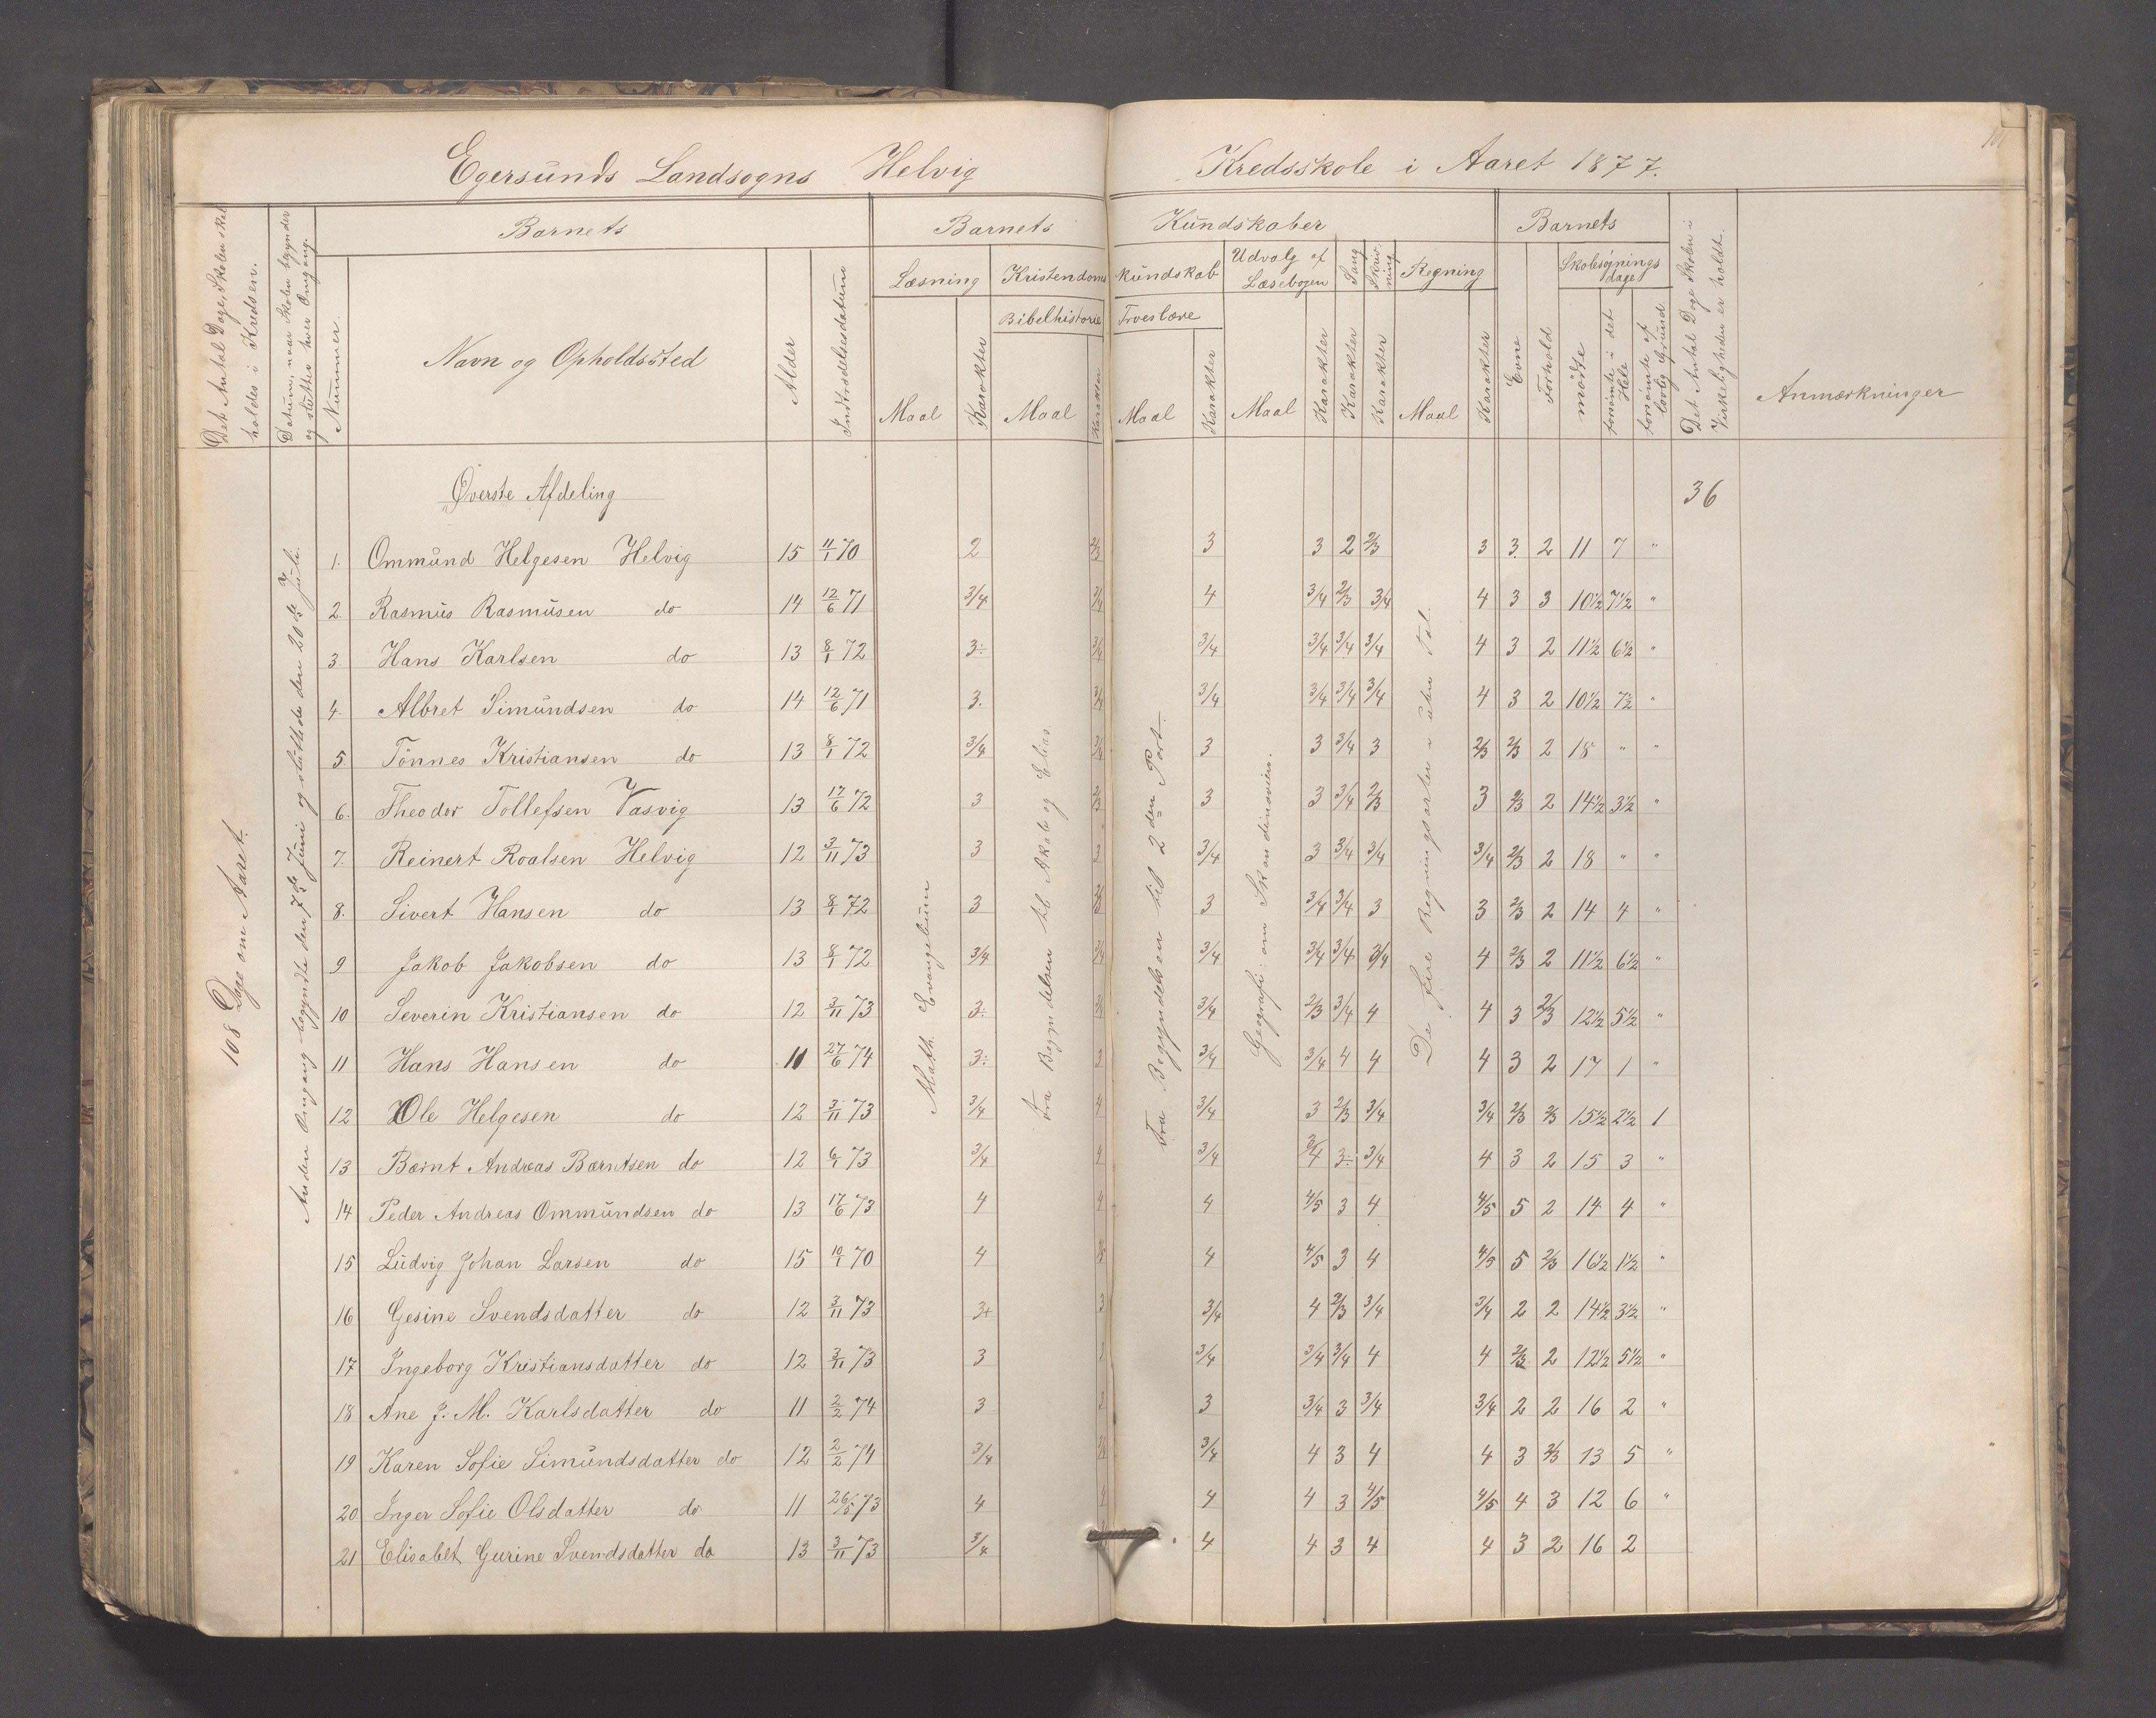 Egersunds Landsogns Helvig Kredsskole i Aaret 1877.
Det Antal Dage, Skolen skal holdes i Kredsen.
Datum, naar Skolen begynder og slutter hver Omgang.
Barnets
Nummer.
Navn og Opholdssted
Alder
Indtrædelsesdatum
Barnets Kundskaber
Læsning
Maal
Karakter
Kristendomskundskab
Bibelhistorie
Maal
Karakter
Troeslære
Maal
Karakter
Udvalg af Læsebogen
Maal
Karakter
Sang
Karakter
Skrivning
Karakter
Regning
Maal
Karakter
Barnets
Evne
Forhold
Skolesøgningsdage
mødte
forsømte i det Hele
forsømte af lovlig Grund
Det Antal Dage Skolen i Virkeligheden er holdt.
Anmærkninger
108 Dage om Aaret.
Anden Omgang begyndte den 7de Juni og sluttede den 20de Juli.
Math. Evangelium
Fra Begyndelsen til Akab og Elias.
Fra Begyndelsen til 2den Part.
Geografi: om Skandinavien.
De fire Regningsarter i uben. Tal.
Øverste Afdeling 36
1. Ommund Helgesen Helvig 15 11/1 70 2 2/3 3 3 2 2/3 3 3 2 11 7 "
2. Rasmus Rasmusen do 14 12/6 71 3/4 3/4 4 3/4 2/3 3/4 4 3 3 10½ 7½ "
3. Hans Karlsen do 13 8/1 72 3÷ 3/4 3/4 3/4 3/4 3/4 4 3 2 11½ 6½ "
4. Albret Simundsen do 14 12/6 71 3. 3/4 3/4 3/4 3/4 3/4 4 3 2 10½ 7½ "
5 Tönnes Kristiansen do 13 8/1 72 3/4 3/4 3 3 3/4 3 2/3 2/3 2 18 " "
6. Theodor Tollefsen Vasvig 13 17/6 72 3 2/3 3 3 3/4 2/3 3 2/3 2 14½ 3½ "
7. Reinert Roalsen Helvig 12 3/11 73 3 3 3/4 3 3/4 3/4 3/4 2/3 2 18 " "
8. Sivert Hansen do 13 8/1 72 3 2/3 3 3/4 3/4 3 3 2/3 2 14 4 "
9 Jakob Jakobsen do 13 8/1 72 3/4 3/4 3/4 3/4 3/4 3/4 4 2/3 2 11½ 6½ "
10 Severin Kristiansen do 12 3/11 73 3÷ 3/4 3/4 2/3 3/4 4 4 3 2/3 12½ 5½ "
11 Hans Hansen do 11 27/6 74 3÷ 3 3/4 3/4 4 4 4 3 2 17 1 "
12 Ole Helgesen do 12 3/11 73 3/4 4 3/4 3 2/3 3/4 3/4 2/3 2/3 15½ 2½ 1
13 Bærnt Andreas Bærntsen do 12 6/1 73 3/4 4 3/4 3/4 3÷ 3/4 4 3 2 15 3 "
14 Peder Andreas Ommundsen do 13 17/6 73 4 4 4 4/5 3 4 4/5 5 2 14 4 "
15 Ludvig Johan Larsen do 15 10/1 70 4 4 4/5 3 4 4/5 5 2/3 16½ 1½ "
16 Gesine Svendsdatter do 12 3/11 73 3+ 3 3/4 4 2/3 3/4 3/4 2 2 14½ 3½ "
17 Ingeborg Kristiansdatter do 12 3/11 73 3 3/4 3/4 3/4 4 4 2/3 2 12½ 5½ "
18 Ane J. M. Karlsdatter do 11 2/2 74 3 3 3/4 3 3/4 3/4 2 2 16 2 "
19 Karen Sofie Simundsdatter do 12 2/2 74 3/4 3/4 4 3 4 4 3 2/3 13 5 "
20 Inger Sofie Olsdatter do 11 26/5 73 4 4 4 4 3 4/5 4/5 4 3 12 6 "
21 Elisabet Gurine Svendsdatter do 13 3/11 73 3/4 4 4 3 4 4 3 2 16 2